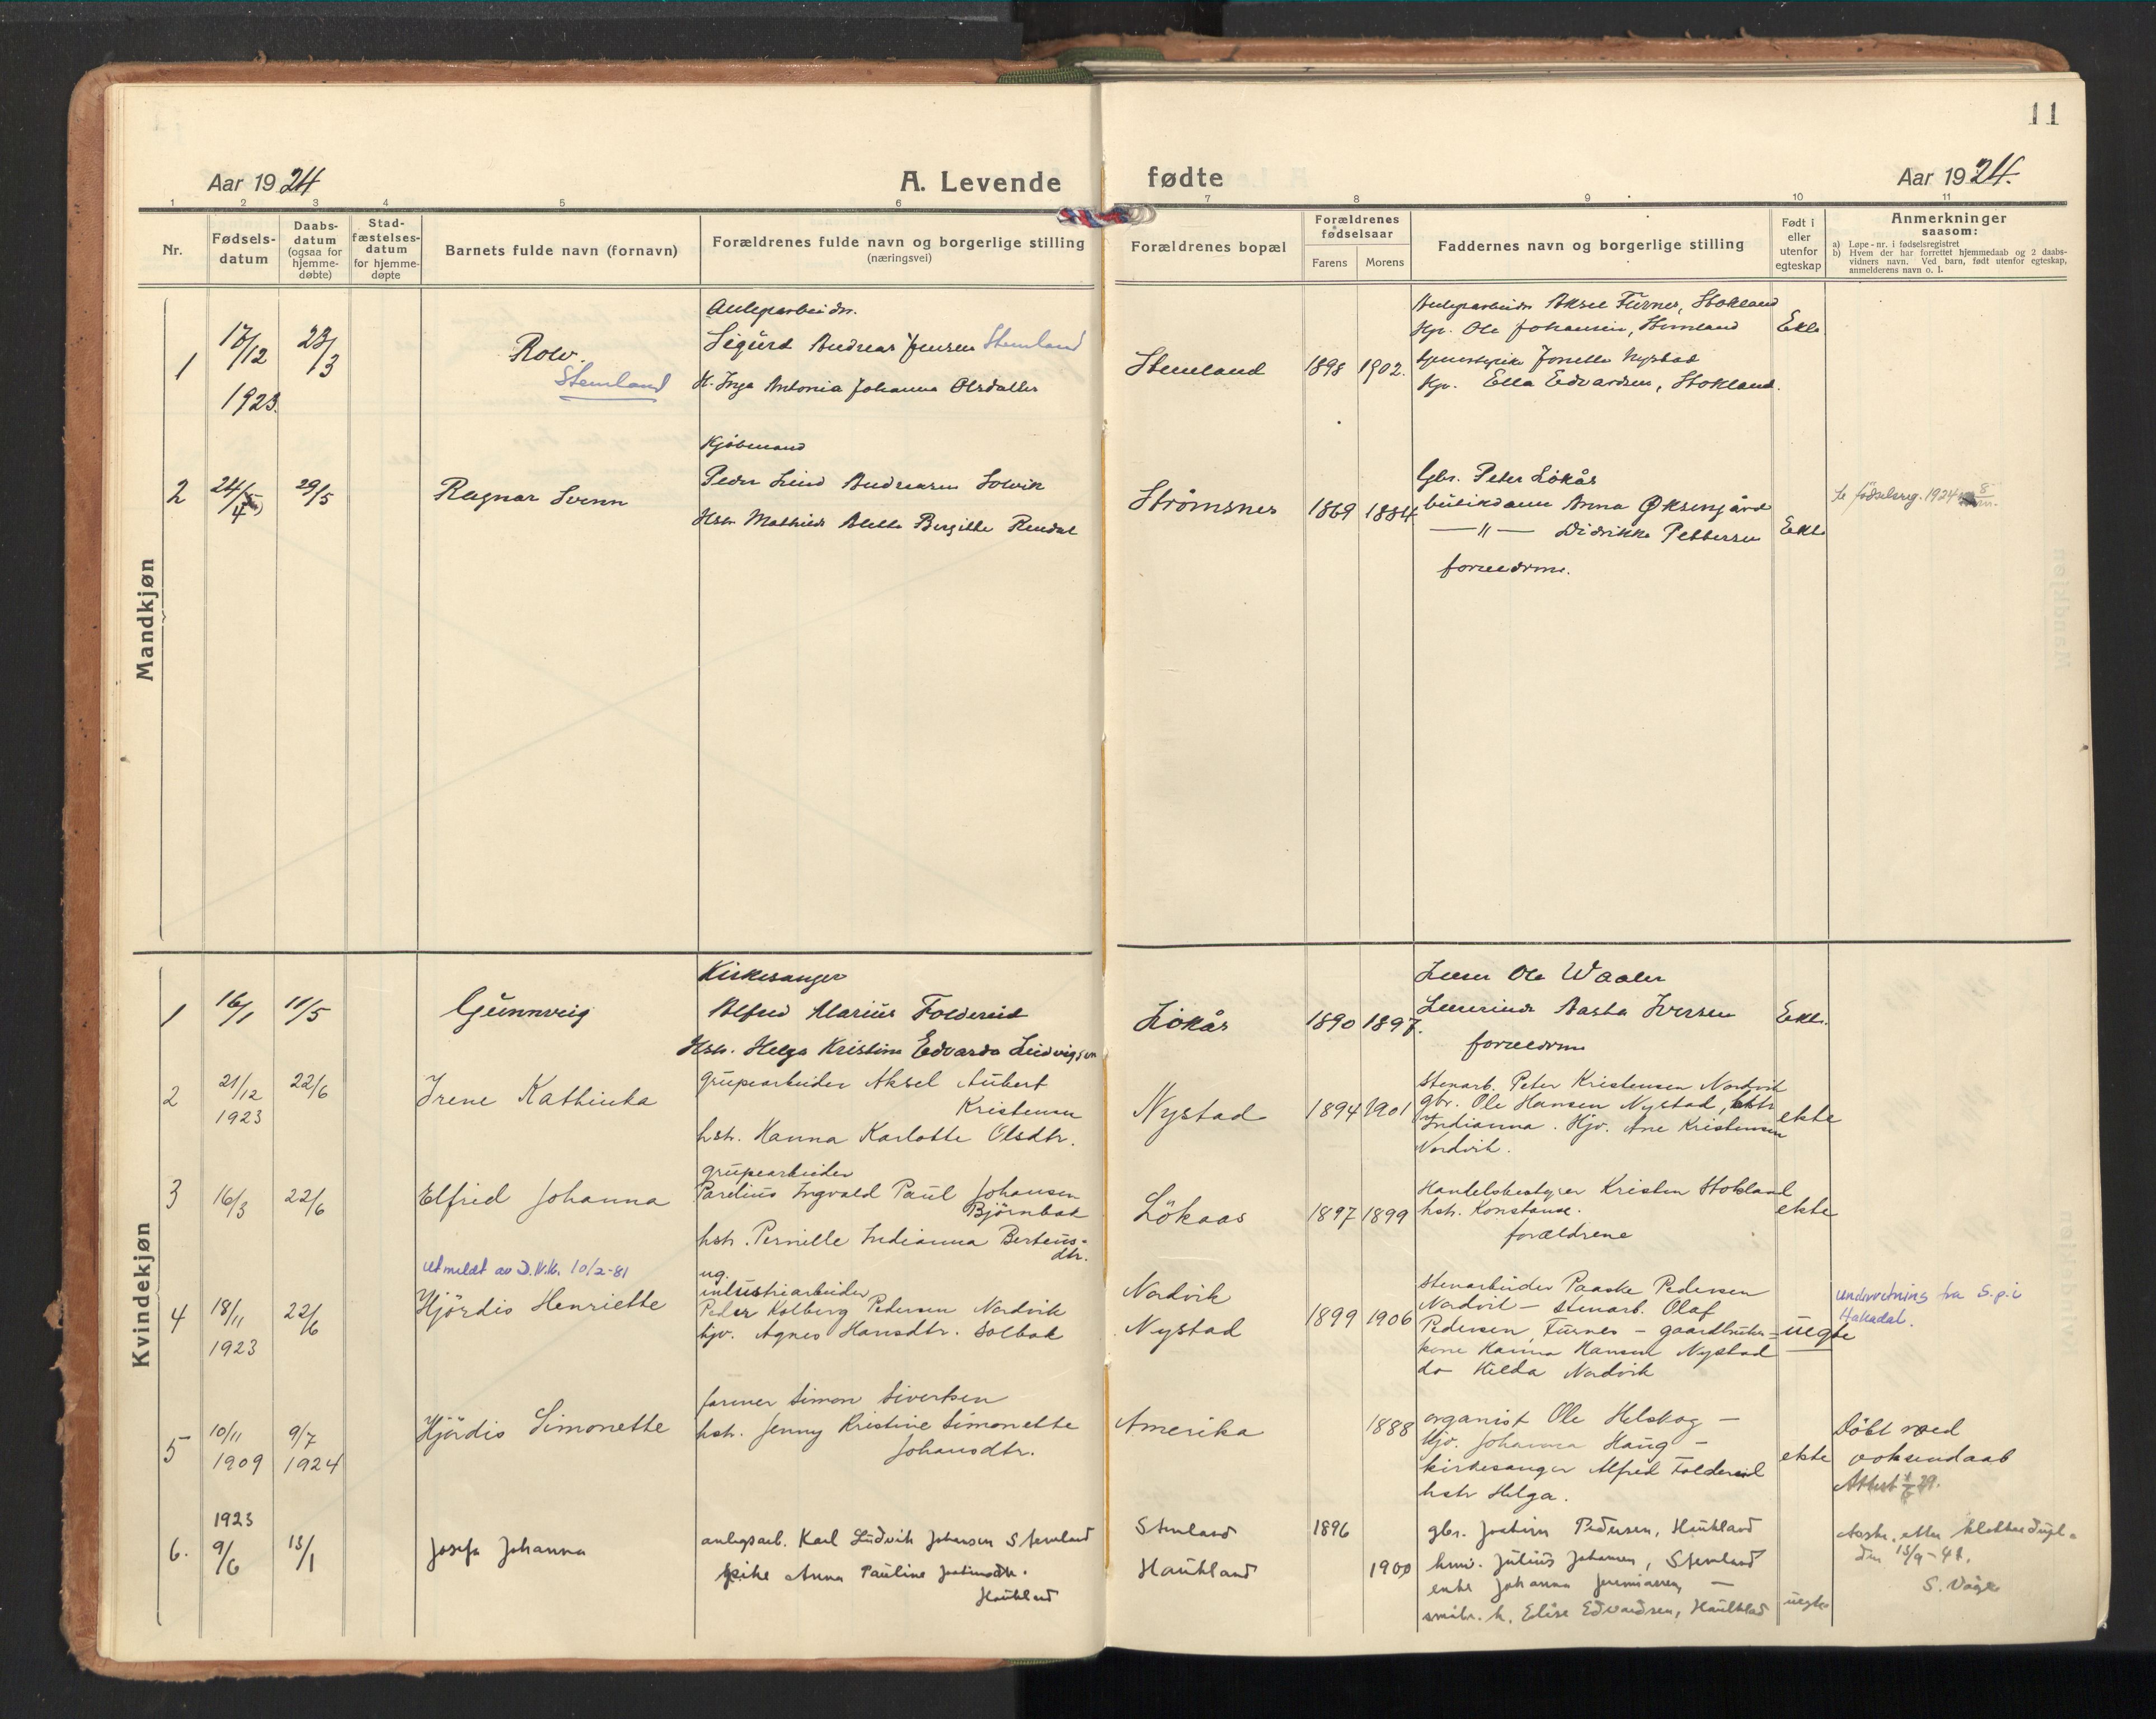 11
Aar 1924
A. Levende
fødte
Aar 1924.
1 2 3 4 5 6 7 8 9 10 11
Nr.
Fødsels-
datum
Daabs-
datum
(ogsaa for
hjemme-
døbte)
Stad-
fæstelses-
datum
for hjemme-
døpte
Barnets fulde navn (fornavn)
Forældrenes fulde navn og borgerlige stilling
(næringsvei)
Forældrenes bopæl
Forældrenes
fødselsaar
Farens Morens
Faddernes navn og borgerlige stilling
Født i
eller
utenfor
egteskap
Anmerkninger
saasom:
a) Løpe-nr. i fødselsregistret
b) Hvem der har forrettet hjemmedaab og 2 daabs-
vidners navn. Ved barn, født utenfor egteskap,
anmelderens navn o. l.
Mandkjøn
1
17/12
1923.
23/3
Rolv.
Stemland
Anlegsarbeider.
Sigurd Andreas Jensen Stemland
H. Inga Antonia Johanna Olsdatter
Stemland
1898
1902.
Anlegsarbeider Aksel Furnes, Stokland
Gpr. Ole Johansen, Stemland
Jonette Nystad
Gpr. Ella Edvardsen, Stokland.
Ekte
2
24/4
29/5
Ragnar Svenn
Kjøbmand
Peder Lind Andreasen Solvik
Hstr. Mathilde Alette Bergitte Rendal
Strömsnes
1869
1884
Gbr. Peter Lökås
butikdame Anna Øksengård
— " — Didrikke Pettersen
forældrene.
Ekte
Se fødselsreg. 1924 8
Kvindekjøn
1
16/1
11/5
Gunnveig
Kirkesanger
Alfred Marius Foldereid
Hstr. Helga Kristine Edvarda Ludvigsen
Lökås
1890
1897.
Lærer Ole Waaler
Lærerinde Aasta Iversen
forældrene
Ekte.
2
21/12
1923
22/6
Irene Kathinka
Grubearbeider Aksel Aubert
Kristensen
hstr. Hanna Karlotte Olsdtr.
Nystad
1894
1901
Stenarb. Peter Kristensen Nordvik
gbr. Ole Hansen Nystad, hstr
Indianna. Gjv. Ane Kristensen
Nordvik.
ekte
3
16/3
22/6
Elfrid Johanna
grubearbeider
Parelius Ingvald Paul Johansen
Björnbak
hstr. Pernille Indianna Berteus-
dtr.
Lökaas
1897
1899
Handelsbestyrer Kristen Stokland
hstr. Konstanse.
forældrene
ekte
Utmeldt av D.N.K. 10/2-81
4
18/11
1923
22/6
Hjördis Henriette
ug.
industriarbeider
Peder Kolberg Pedersen Nordvik
tjv. Agnes Hansdtr. Solbak
Nordvik
Nystad
1899
1906
Stenarbeider Paaske Pedersen
Nordvik — stenarb. Olaf
Pedersen, Furnes — gaardbruker-
kone Hanna Hansen Nystad
do Hilda Nordvik
uegte
Underretning fra S.p. i
Hakadal.
5
10/11
1909
9/7
1924
Hjördis Simonette
farmer Simon Sivertsen
hstr. Jenny Kristine Simonette
Johansdtr.
Amerika
1888
organist Ole Helskog —
Gjv. Johanna Haug —
kirkesanger Alfred Foldereid
hstr Helga.
ekte
Döbt ved
voksendaab
Attest
6.
1923
9/6
13/1
Josefa Johanna
anlegsarb. Karl Ludvik Johansen Stemland
pike Anna Pauline
Haukland
Stemland
Haukland
1896
1900
gbr. Joakim Pedersen, Haukland
Julius Johansen, Stemland
enke Johanna Jeremiassen —
Elise Edvardsen, Haukland
uegte
etter klokkerdupl.
den 15/9-41.
S. Våge